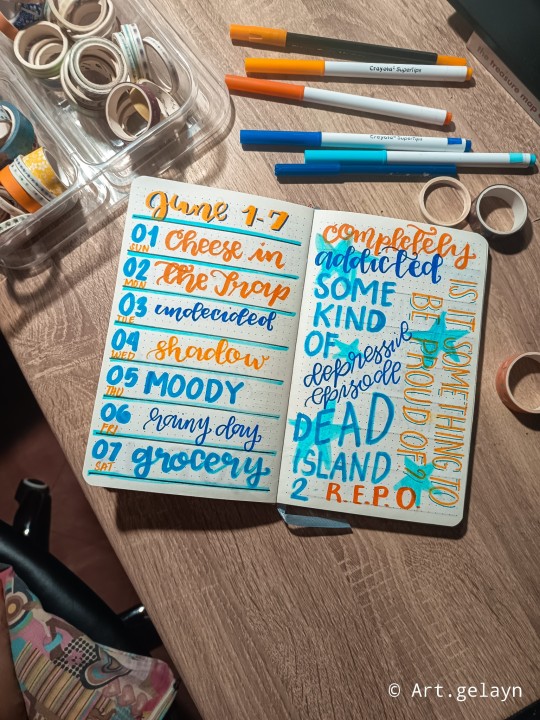 Crayola® SuperTips
Crayola® SuperTips
the treasure map
June 1-7
01 SUN Cheese in
02 MON the Trap
03 TUE undecided
04 WED shadow
05 THU MOODY
06 FRI rainy day
07 SAT grocery
completely
addicted
SOME
KIND
OF
depressive
episode
DEAD
ISLAND
2 R.E.P.O.
IS IT SOMETHING TO
BE PROUD OF?
© Art.gelayn